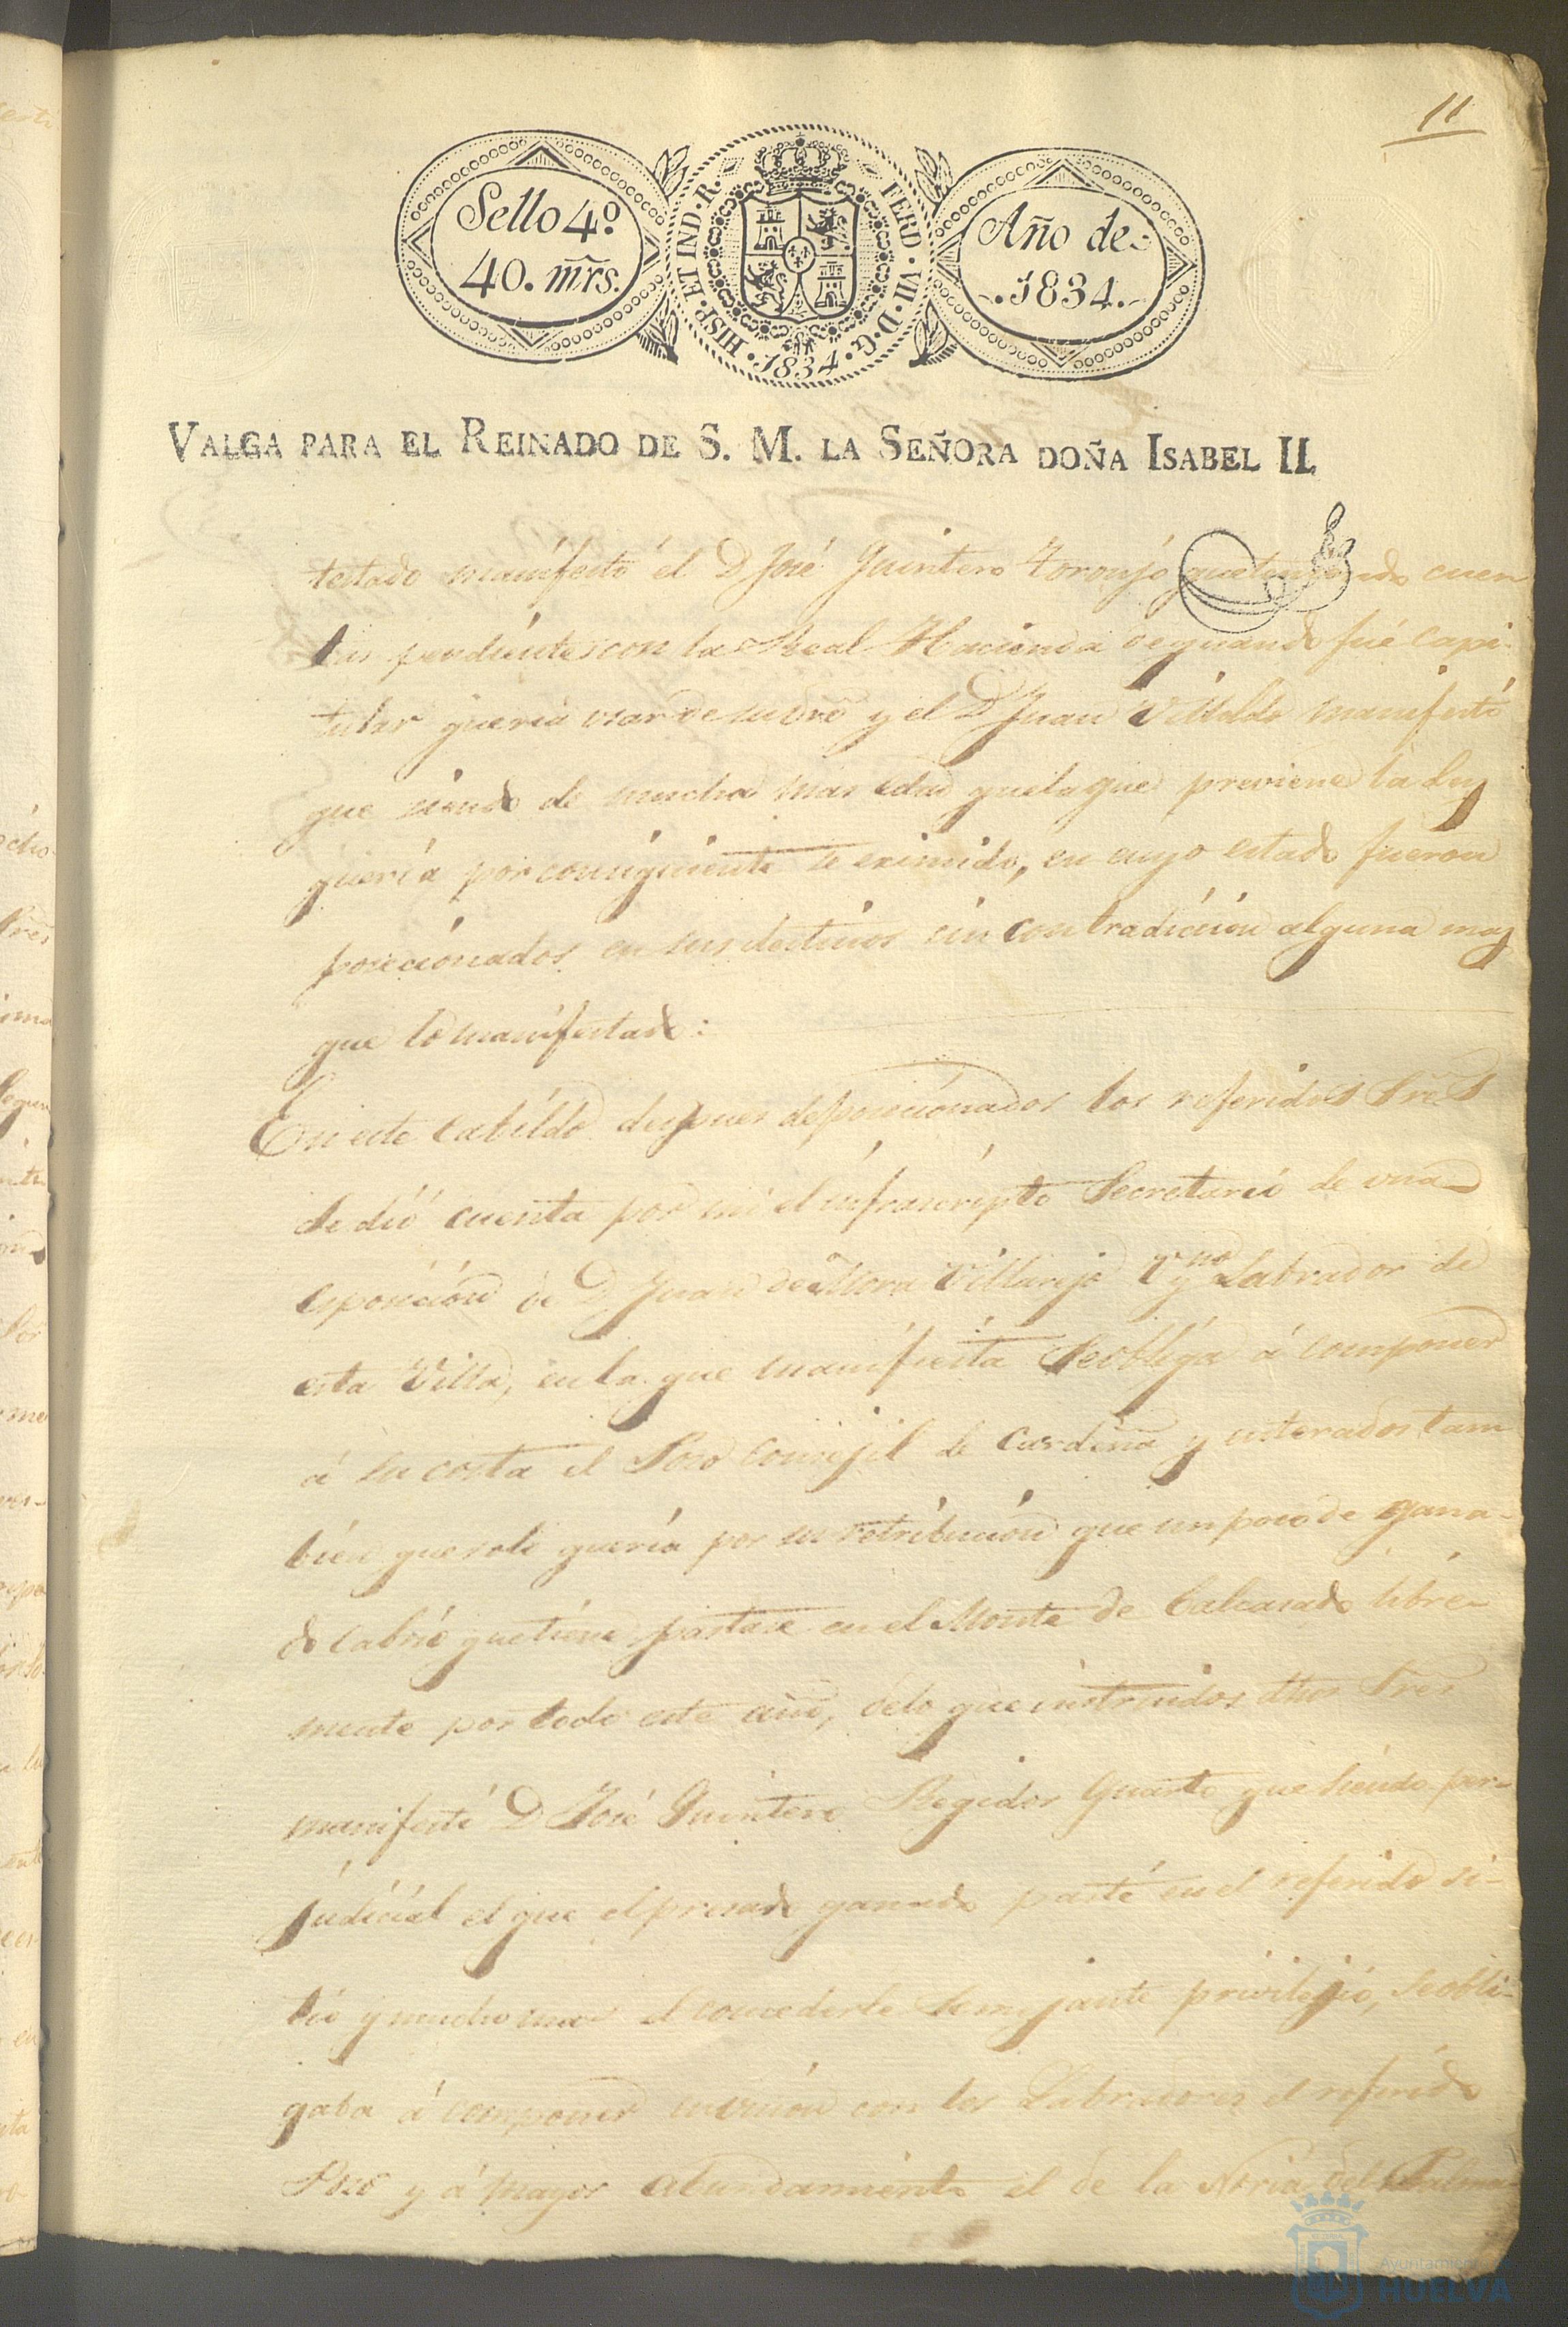 11
Sello 4º
40. mrs.
HISP. ET IND. R. FERD. VII. D. G. 1834.
Año de
1834.
VALGA PARA EL REINADO DE S. M. LA SEÑORA DOÑA ISABEL II.
testado manifestó el D José Quintero Toronjo que teniendo cuen
tas pendientes con la Real Hacienda de quando fué Capi-
tular queria usar de su dro y el D Juan Villalds manifestó
que siendo de mucha mas edad que la que previene la Ley
quería por consiguiente se eximido, en cuyo estado fueron
posecionados en sus destinos sin contradición alguna mas
que lo manifestado:
En este Cabildo despues de posecionados los referidos Sres
se dió cuenta por mi el infrascripto Secretario de una
esposición de D Juan de Mora Villarejo Vno y Labrador de
esta Villa, en la que manifiesta se obliga á componer
á su costa el Poso Consejil de Cardeña y enterados tam
bien que solo quería por su retribución que un poco de gana-
do cabrío que tiene pastase en el Monte de Calcasado libre-
mente por todo este año, de lo que instruidos dhos Sres
manifestó D José Quintero Regidor Quarto que siendo per-
judicial el que el presado ganado paste en el referido si-
tio y mucho mas el concederle semejante privilejio, se obli-
gaba á componer en unión con los Labradores el referido
Poso y á mayor abundamiento el de la Noria del Palma
Ayuntamiento
HUELVA